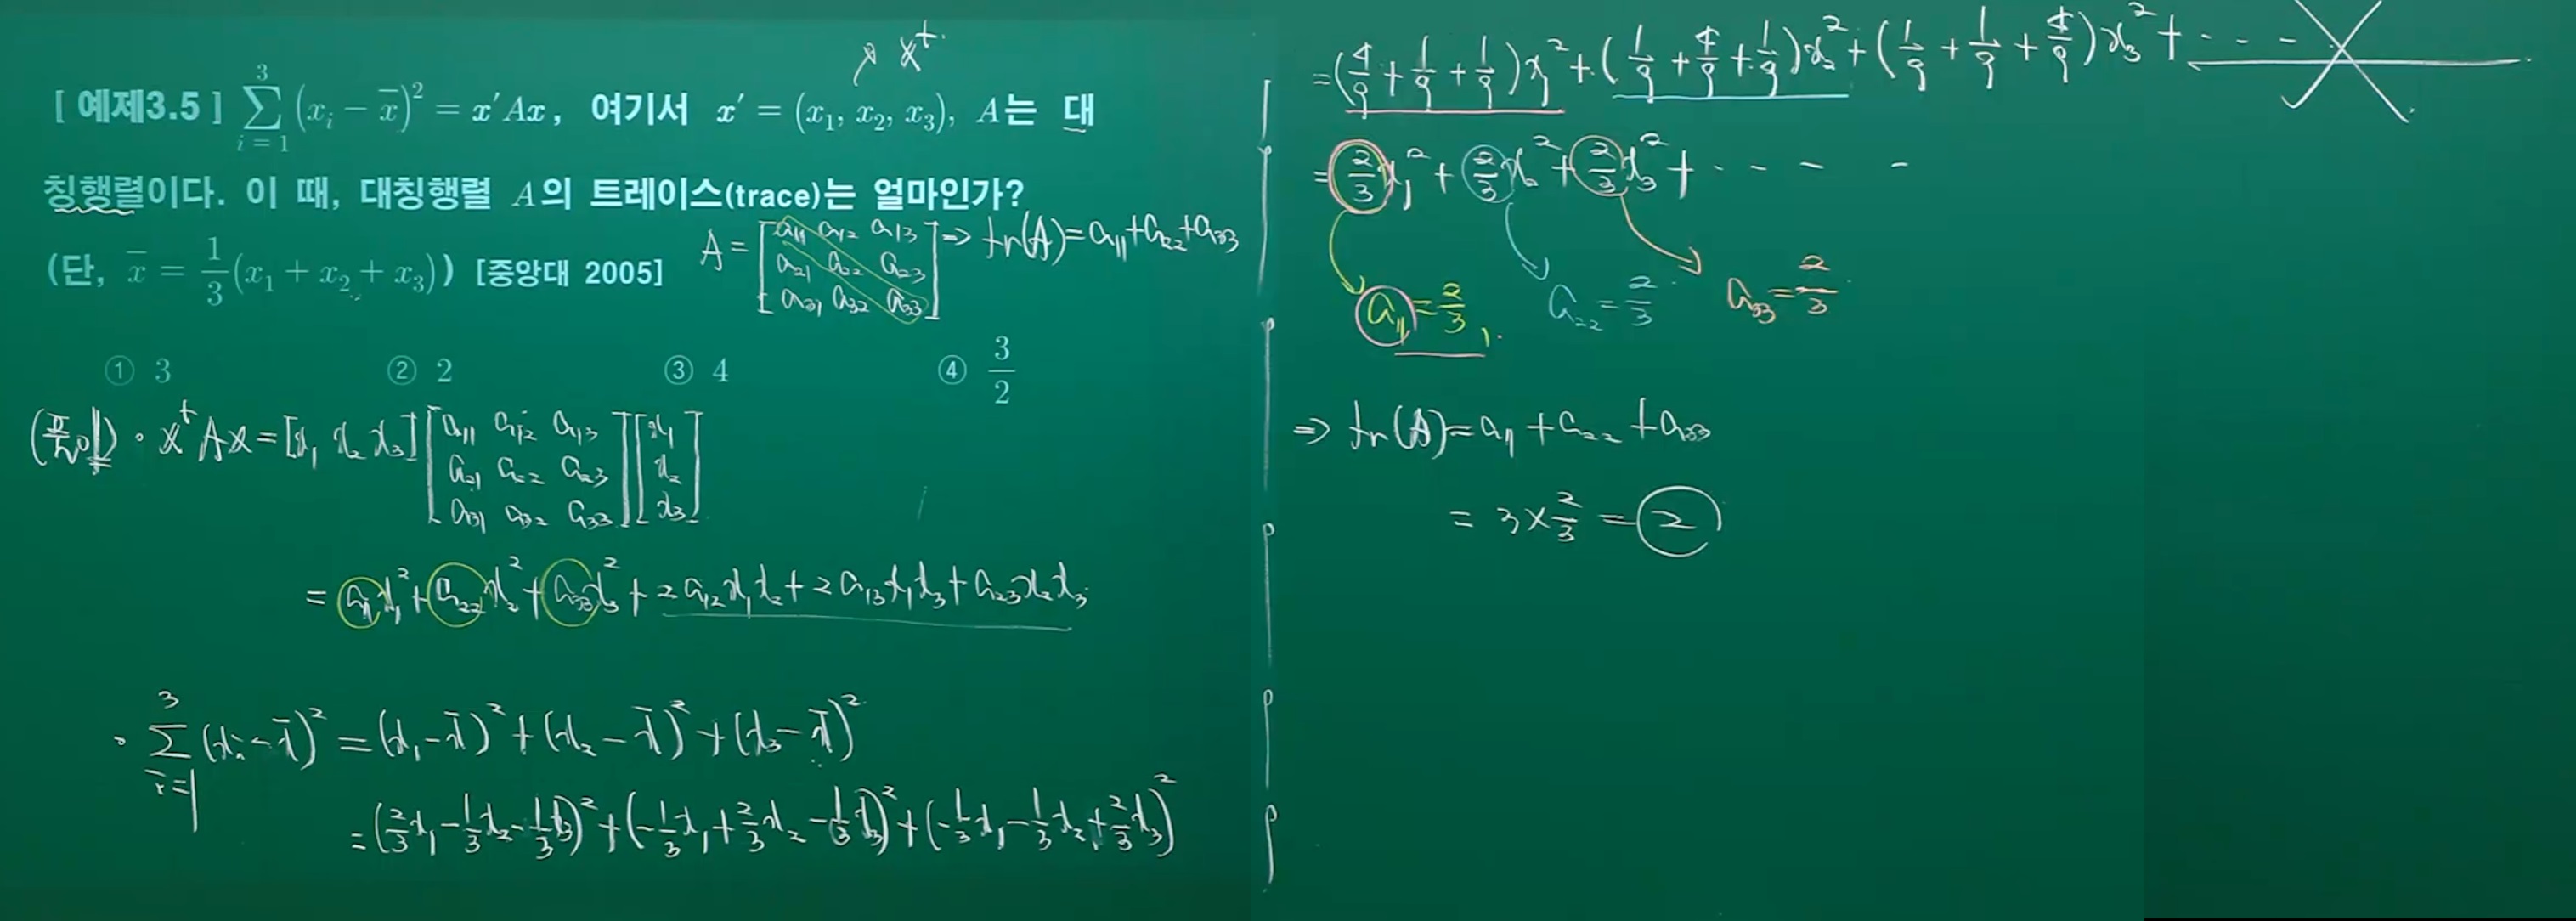 x^t
[ 예제3.5 ] \sum_{i=1}^{3} (x_i - \bar{x})^2 = x'Ax, 여기서 x' = (x_1, x_2, x_3), A는 대
칭행렬이다. 이 때, 대칭행렬 A의 트레이스(trace)는 얼마인가?
(단, \bar{x} = \frac{1}{3}(x_1 + x_2 + x_3)) [중앙대 2005]
A = [a_{11} a_{12} a_{13}; a_{21} a_{22} a_{23}; a_{31} a_{32} a_{33}] => tr(A) = a_{11} + a_{22} + a_{33}
① 3 ② 2 ③ 4 ④ \frac{3}{2}
(풀이) · x^t Ax = [x_1 x_2 x_3] [a_{11} a_{12} a_{13}; a_{21} a_{22} a_{23}; a_{31} a_{32} a_{33}] [x_1; x_2; x_3]
= a_{11}x_1^2 + a_{22}x_2^2 + a_{33}x_3^2 + 2a_{12}x_1x_2 + 2a_{13}x_1x_3 + a_{23}x_2x_3
· \sum_{i=1}^{3} (x_i - \bar{x})^2 = (x_1 - \bar{x})^2 + (x_2 - \bar{x})^2 + (x_3 - \bar{x})^2
= (\frac{2}{3}x_1 - \frac{1}{3}x_2 - \frac{1}{3}x_3)^2 + (-\frac{1}{3}x_1 + \frac{2}{3}x_2 - \frac{1}{3}x_3)^2 + (-\frac{1}{3}x_1 - \frac{1}{3}x_2 + \frac{2}{3}x_3)^2
= (\frac{4}{9} + \frac{1}{9} + \frac{1}{9})x_1^2 + (\frac{1}{9} + \frac{4}{9} + \frac{1}{9})x_2^2 + (\frac{1}{9} + \frac{1}{9} + \frac{4}{9})x_3^2 + - - -
= \frac{2}{3}x_1^2 + \frac{2}{3}x_2^2 + \frac{2}{3}x_3^2 + - - - -
a_{11} = \frac{2}{3}, a_{22} = \frac{2}{3} a_{33} = \frac{2}{3}
=> tr(A) = a_{11} + a_{22} + a_{33}
= 3 × \frac{2}{3} = 2